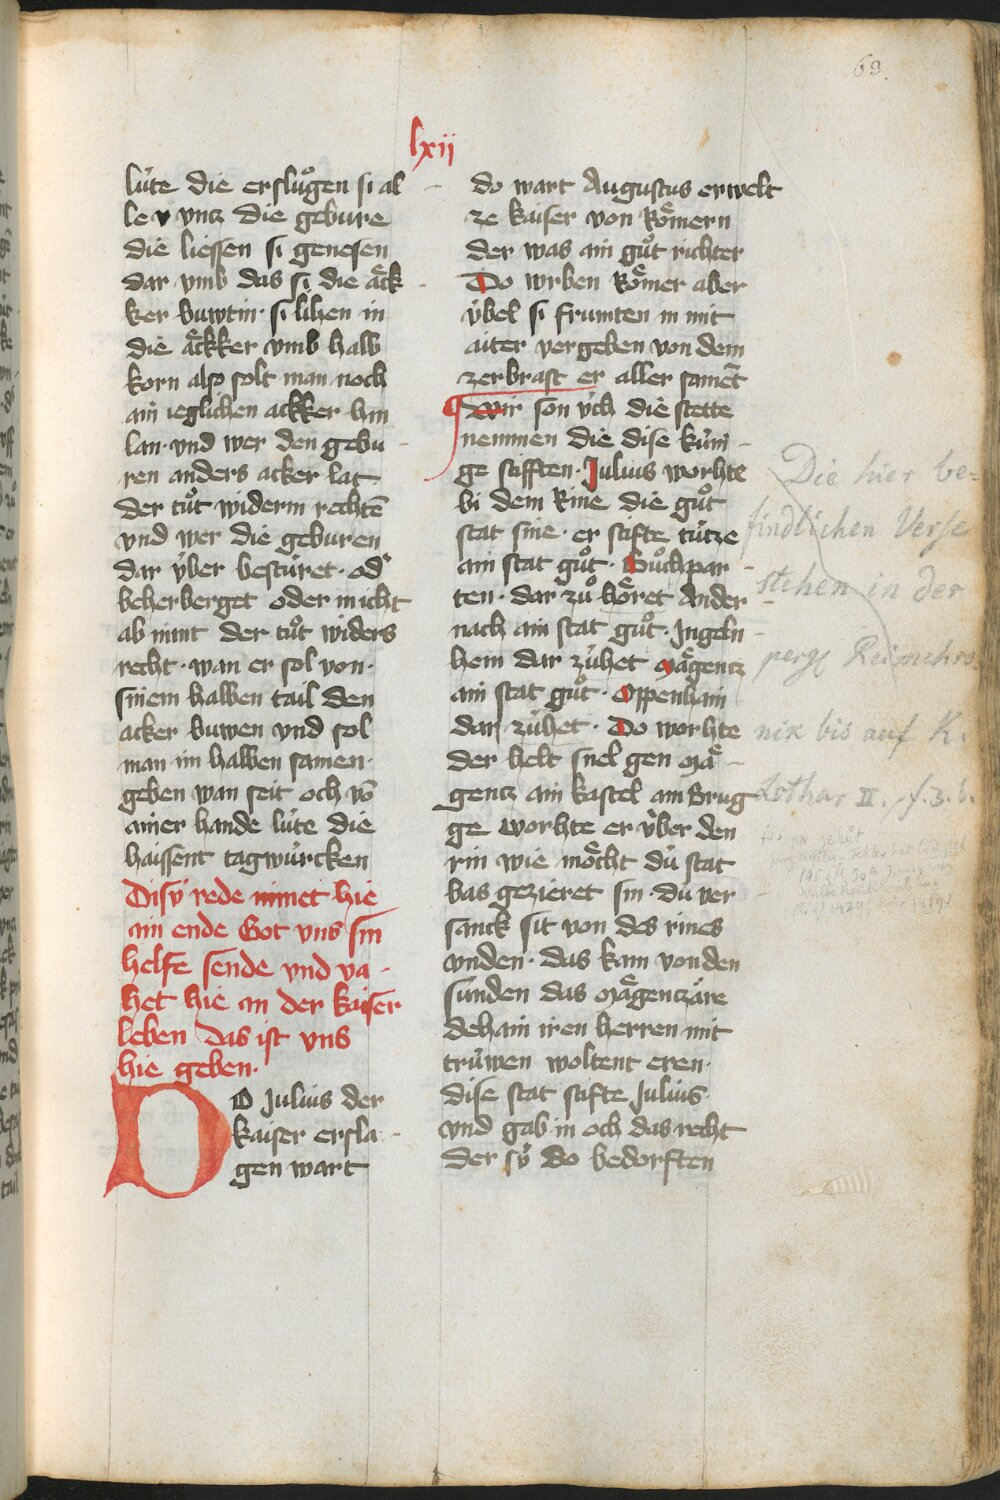 63.
lxii
lu̍te die erslůgen si al
le v vntz die gebure
die liessen si genesen
dar vmb das si die aͤck
ker buwtin · si lihen in
die aͤckker vmb halb
korn also solt man noch
ain ieglichen ackker hin
lan · vnd wer den gebu
ren anders acker lat
der tůt widerm rechtē
vnd wer die geburen
dar v̍ber bestu̍ret · od'
beherberget oder in icht
ab nimt der tůt widers
recht · wan er sol von ·
sinem halben tail den
acker buwen vnd sol
man im halben samen ·
geben wan seit och vō
ainer hande lu̍te die
haissent tagwu̍rcken
Disv̍ rede nimet hie
ain ende Got vns sin
helfe sende vnd va
het hie an der kaiser
leben das ist vns
hie geben ·
DO Julius der
kaiser ersla
gen wart
do wart Augustus erwelt
ze kaiser von Roͤmern
der was ain gůt richter
Do wrben Roͤmer aber
v̍bel si frumten in mit
aiter vergeben von dem
zerbrast er aller samēt
Wir son v̍ch die stette
nemmen die dise ku̍ni
ge stifften · Julius worhte
bi dem Rine die gůt
stat sine · er stifte tu̍tze
ain stat gůt · Bůchpar
ten · dar zů hoͤret Ander
nach ain stat gůt · Jngeln
hein dar zu̍het Maͤgentz
ain stat gůt · Oppenhain
dar zu̍het · Do worhte
der helt snel gen Maͤ
gentz ain kastel ain Brug
ge worhte er v̍ber den
rin wie moͤcht du̍ stat
bas gezieret sin · du̍ ver
sanck sit von des rines
vnden · das kam von den
su̍nden das Maͤgentzaͤre
dehain iren herren mit
tru̍wen woltent eren ·
dise stat stifte Julius ·
vnd gab in och das recht
der sy̍ do bedorften
Die hier be=
findlichen Verse
stehen in der
Reimchro
nik bis auf K.
Lothar II. f. 3. b.